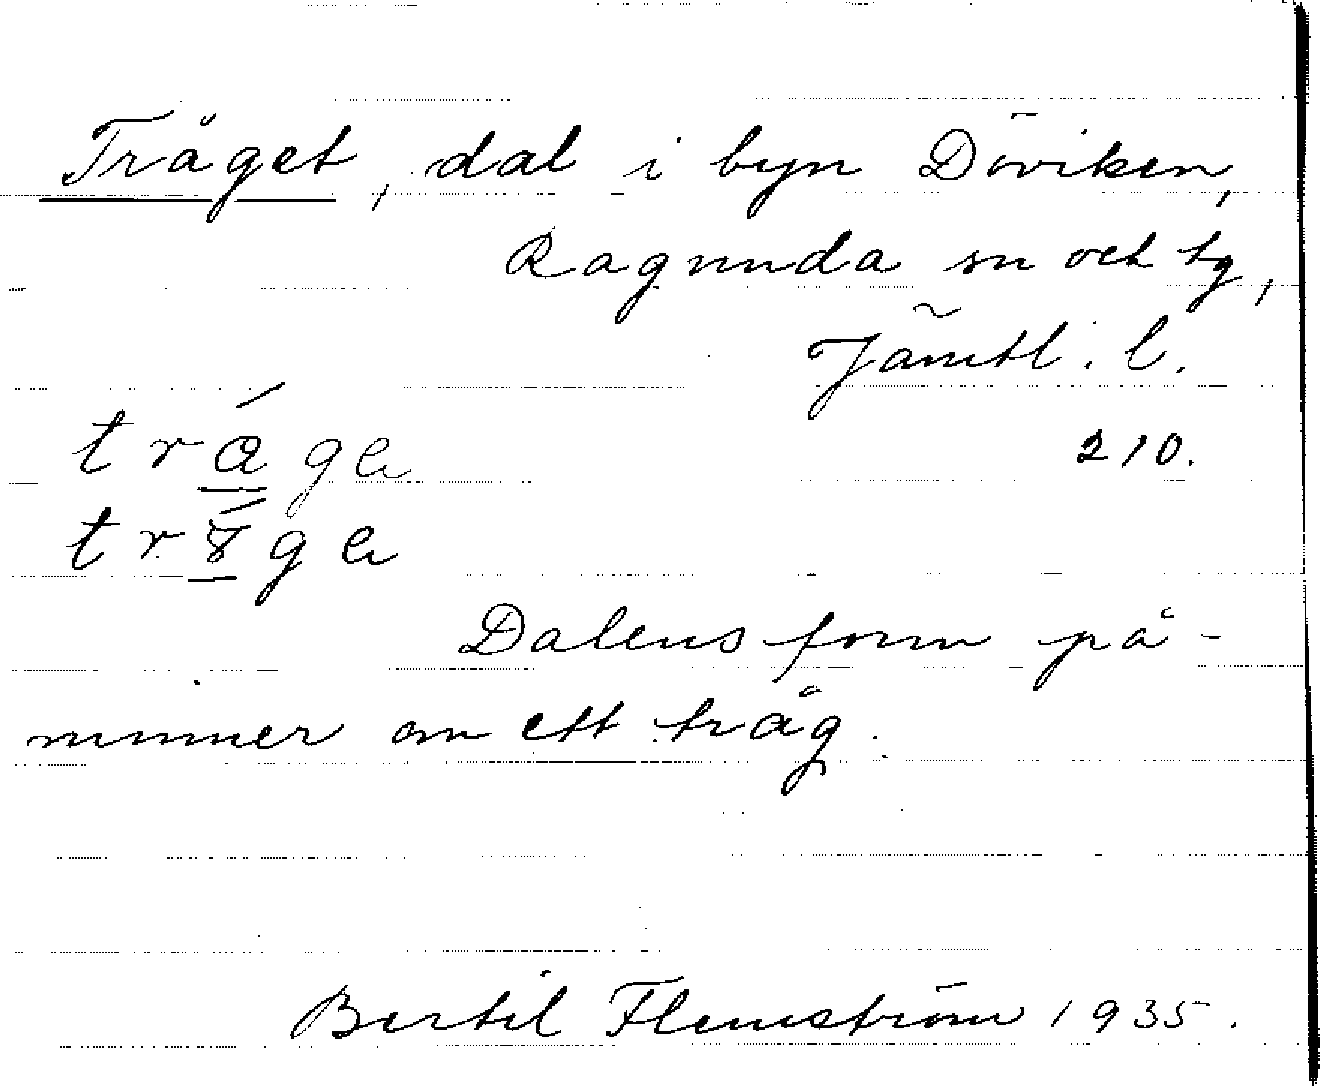 Tråget, dal i byn Döviken,
Ragunda sn och tg,
Jämtl. l.
210.
Dalens form på-
minner om ett tråg.
Bertil Flemström 1935.